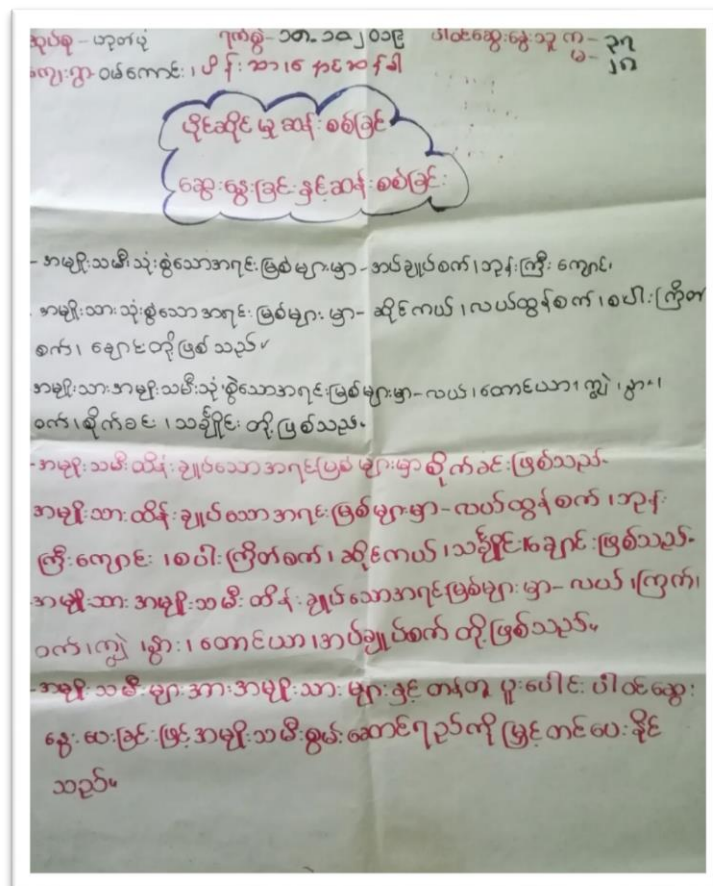 အုပ်စု - ဟုတ်ပုံ ရက်စွဲ - ၁၈.၁၁.၂၀၁၉ ပါဝင်ဆွေးနွေးသူ ကျ - ၃၇
မ - ၂၈
ကျေးရွာ
ပိုင်ဆိုင်မှုဆန်းစစ်ခြင်း
ဆွေးနွေးခြင်းနှင့်ဆန်းစစ်ခြင်း
- အမျိုးသမီးသုံးစွဲသောအရင်းမြစ်များမှာ - အပ်ချုပ်စက်၊ဘုန်းကြီးကျောင်း၊
- အမျိုးသားသုံးစွဲသောအရင်းမြစ်များမှာ - ဆိုင်ကယ်၊လယ်ထွန်စက်၊စပါးကြိတ်
စက်၊ ချောင်းတို့ဖြစ်သည်။
အမျိုးသားအမျိုးသမီးသုံးစွဲသောအရင်းမြစ်များမှာ - လယ်၊တောင်ယာ၊ကျွဲ၊နွား၊
ဝက်၊စိုက်ခင်း၊သင်္ချိုင်းတို့ဖြစ်သည်။
- အမျိုးသမီးထိန်းချုပ်သောအရင်းမြစ်များမှာစိုက်ခင်းဖြစ်သည်။
အမျိုးသားထိန်းချုပ်သောအရင်းမြစ်များမှာ - လယ်ထွန်စက်၊ဘုန်း
ကြီးကျောင်း၊စပါးကြိတ်စက်၊ဆိုင်ကယ်၊သင်္ချိုင်း၊ချောင်းဖြစ်သည်။
- အမျိုးသားအမျိုးသမီးထိန်းချုပ်သောအရင်းမြစ်များမှာ - လယ်၊ကြက်၊
ဝက်၊ကျွဲ၊နွား၊တောင်ယာ၊အပ်ချုပ်စက်တို့ဖြစ်သည်။
- အမျိုးသမီးများအားအမျိုးသားများနှင့်တန်တူပူးပေါင်းပါဝင်ဆွေး
နွေးပေးခြင်းဖြင့်အမျိုးသမီးစွမ်းဆောင်ရည်ကိုမြှင့်တင်ပေးနိုင်
သည်။